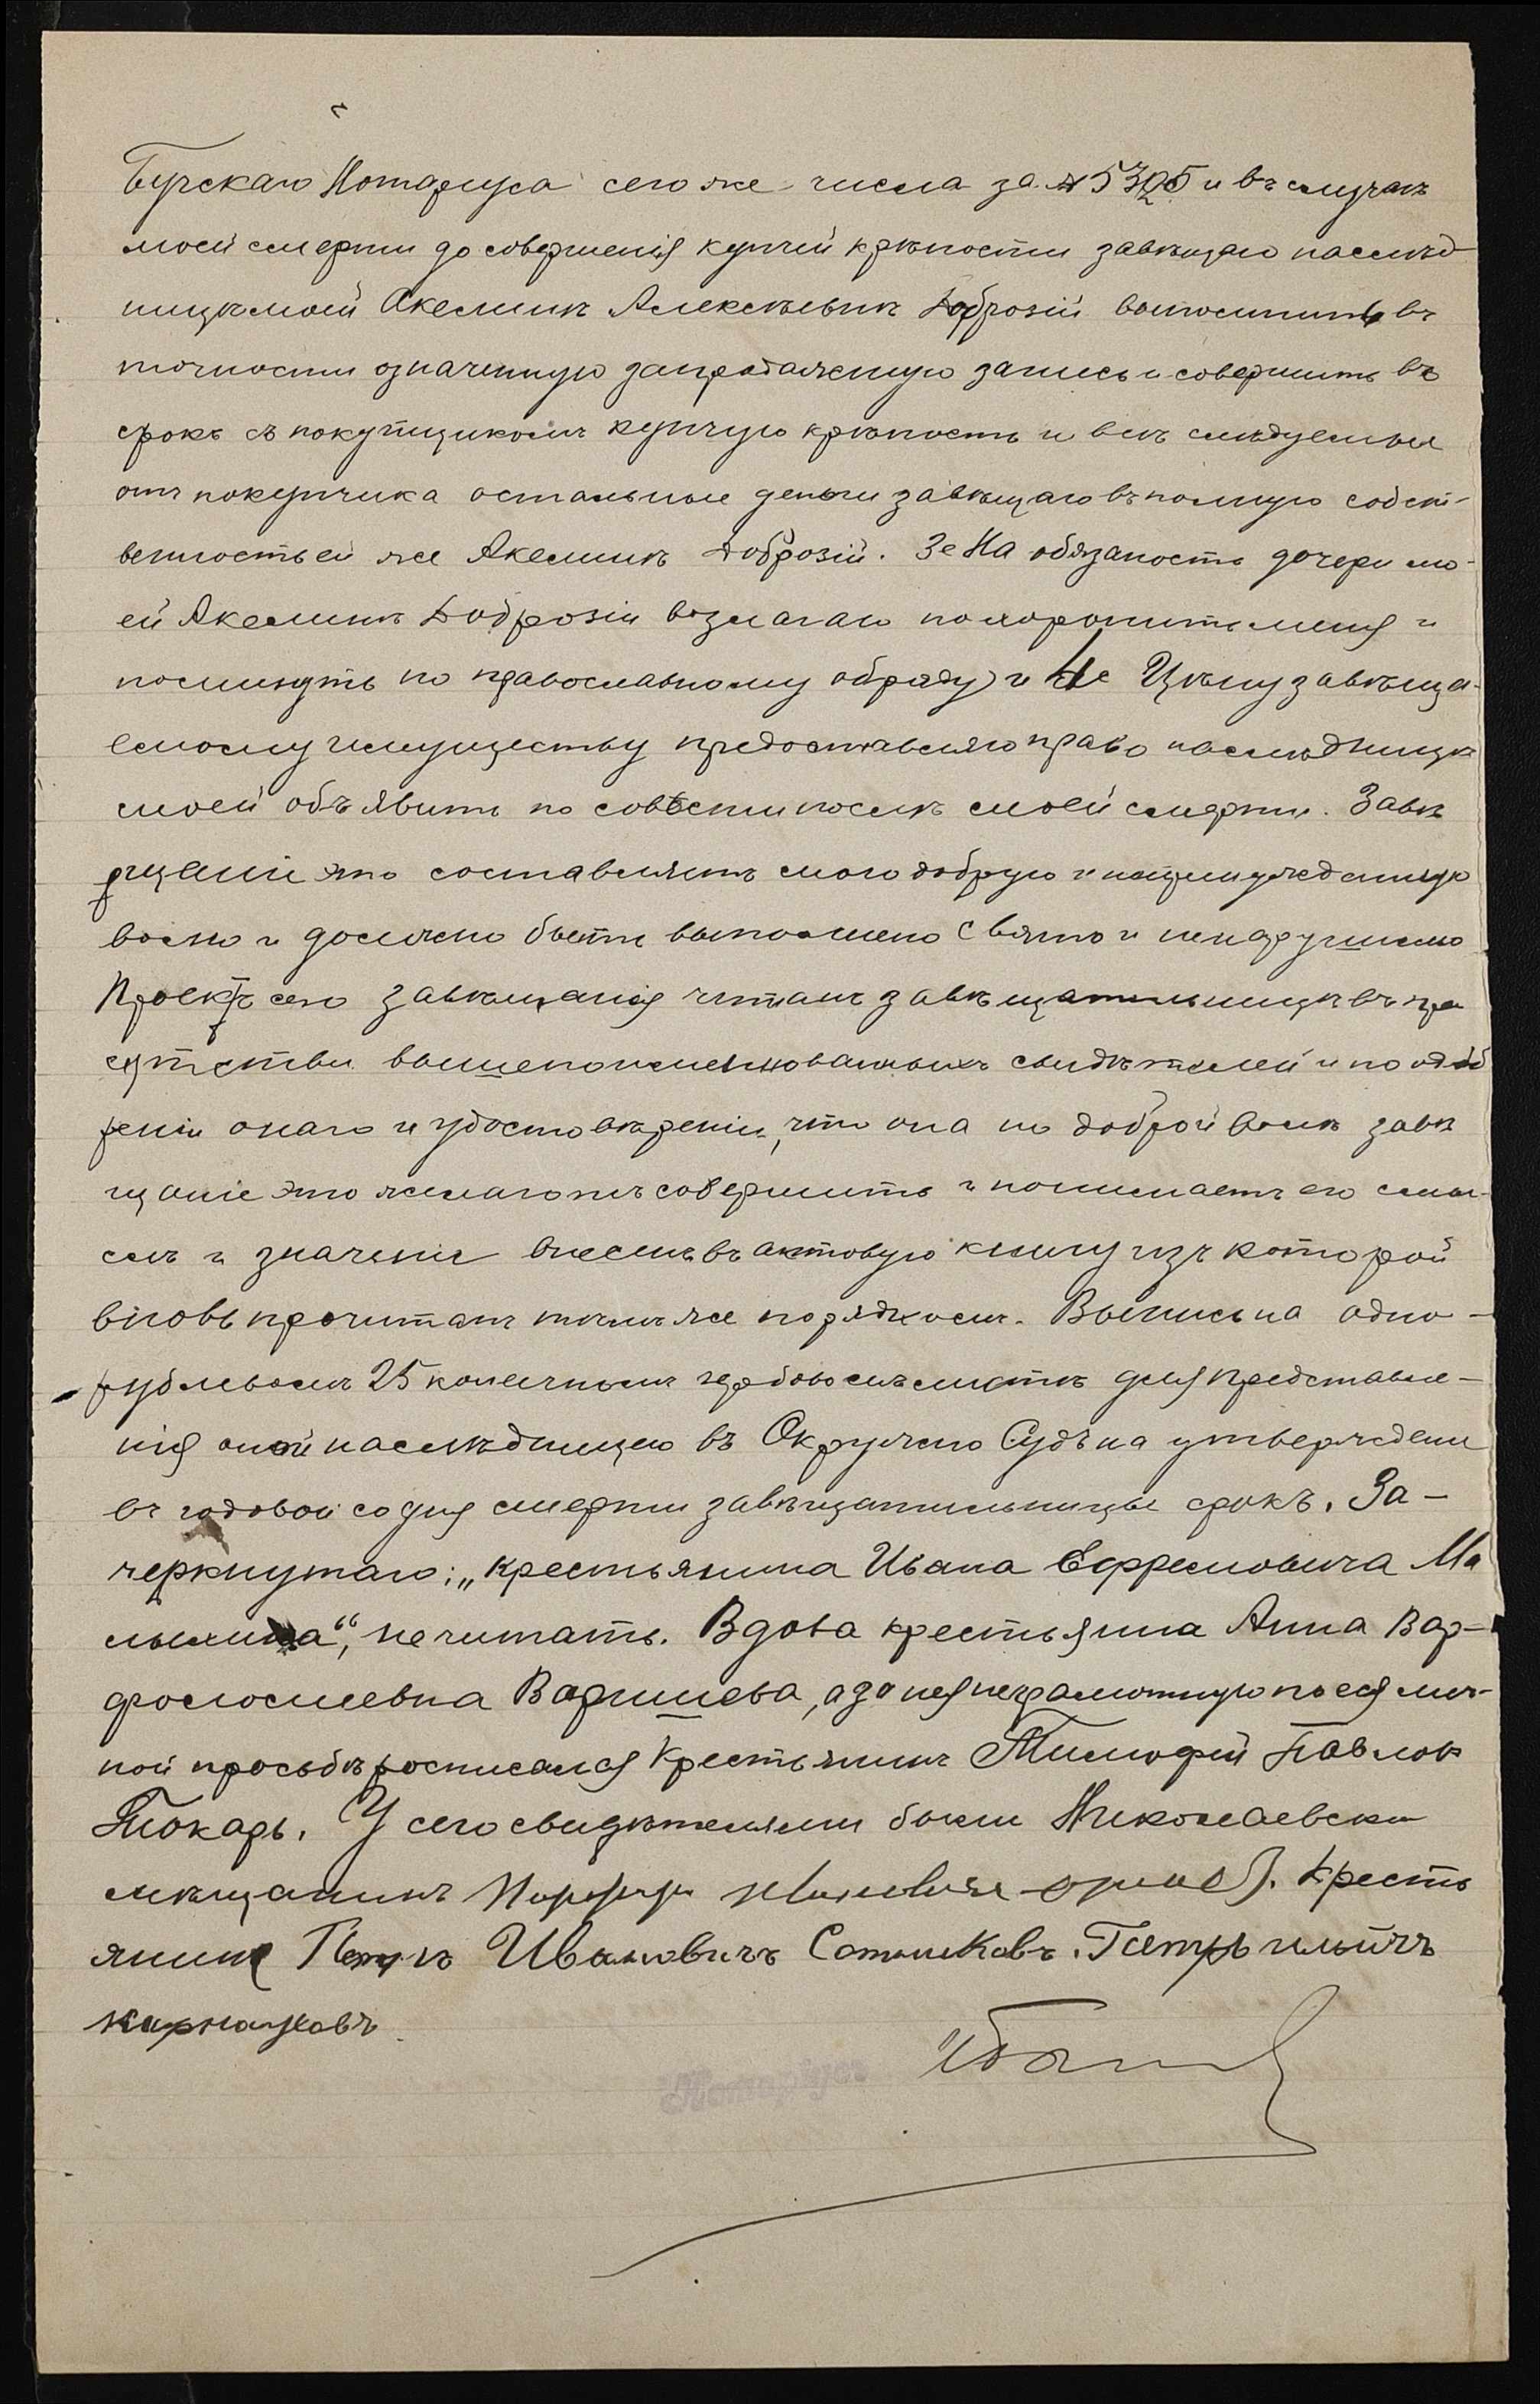 Бугскаго Нотаріуса сего же числа за № 5325 и въ случаѣ
моей смерти до совершенія купчей крѣпости завѣщаю наслѣд-
ницѣ моей Акелинѣ Алексѣевнѣ Доброзій выполнить въ
точности означенную запродажную запись и совершить въ
срокъ съ покупщикомъ купчую крѣпость и всѣ слѣдуемыя
отъ покупчика остальные деньги завѣщаю въ полную собст-
венность ей же Акелинѣ Доброзій. 3е На обязаность дочери мо-
ей Акелинѣ Доброзіи возлагаю похоронить меня и
помянуть по православному обряду и 4е Цѣну завѣща-
емому имуществу предоставляю право наслѣдницѣ
моей объявить по совѣсти послѣ моей смерти. Завѣ
щаніе это составляетъ мою добрую и непринужденную
волю и должно быть выполнено свято и ненарушимо
Проектъ сего завѣщанія читанъ завѣщательницѣ въ при
сутствіи вышепоименнованныхъ свидѣтелей и по одоб
реніи онаго и удостовѣреніи, что она по доброй волѣ завѣ
щаніе это желаетъ совершить и понимаетъ его смы-
слъ и значеніе внесенъ въ актовую книгу изъ которой
вновь прочитанъ тѣмъ же порядкомъ. Выпись на одно-
рублевомъ 25 копеечномъ гербовомъ листѣ для представле-
нія оной наслѣдницею въ Окружно Судъ на утвержденіе
въ годовой со дня смерти завѣщательницы срокъ. За-
черкнутаго: „крестьянина Ивана Ефремовича Ма
лыхина“, не читать. Вдова крестьянина Анна Вар-
фоломеевна Варишева, а за нея неграмотную по ея лич-
ной просьбѣ росписался Крестьянинъ Тимофей Павлов
Токарь. У сего свидѣтелями были Николаевскій
мѣщанинъ Порфирій Крестъ
янинъ Петръ Ивановичъ Сотниковъ. Петръ ильичъ
карнауховъ
Нотаріусъ